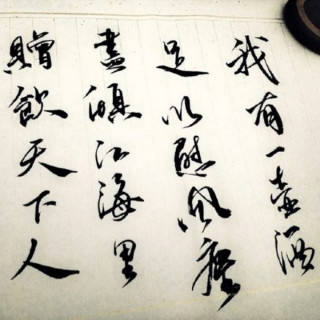 我有一壶酒
足以慰风尘
盡傾江海里
贈飲天下人